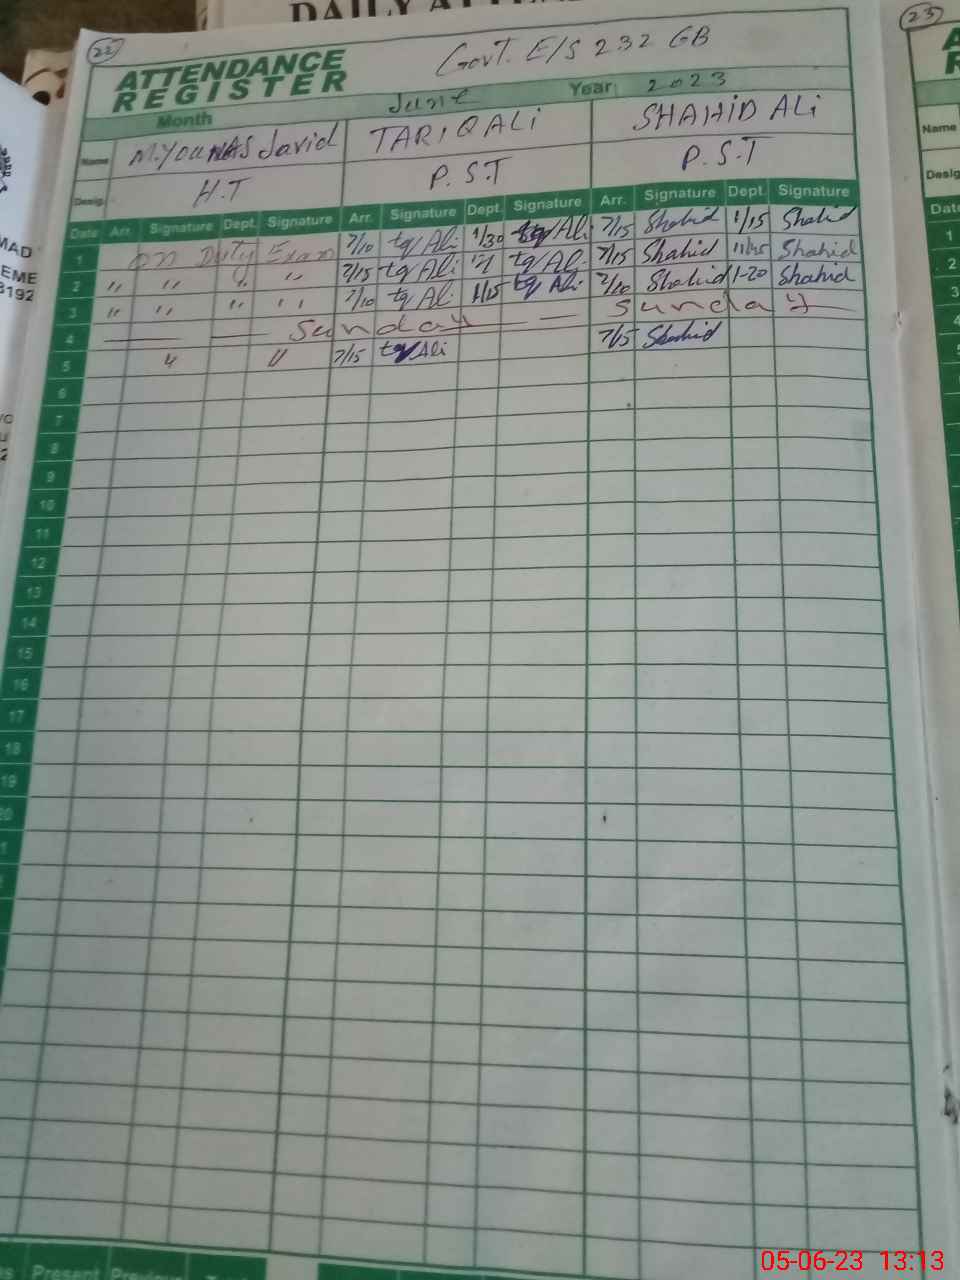 DAILY ATTE
22
23
ATTENDANCE
REGISTER
GovT. E/S 232 GB
Month June Year 2023
Name M.YOUNAS Javid TARIQ ALi SHAHiD ALi
Desig. H.T P.S.T P.S.T
Date Arr. Signature Dept. Signature Arr. Signature Dept. Signature Arr. Signature Dept. Signature
1 on Duty Exam 7/10 tq Ali 1/30 tq Ali 7/15 Shahid 1/15 Shahid
2 " " " " 7/15 tq Ali tq Ali 7/15 Shahid Shahid
3 " " " " 7/10 tq Ali 1/15 tq Ali 7/10 Shahid 1-20 Shahid
4 Sunday Sunday
5 " " 7/15 tq Ali 7/15 Shahid
6
7
8
9
10
11
12
13
14
15
16
17
18
19
Present
Name
Desig
Date
1
2
3
5
MAD
EME
3192
05-06-23 13:13